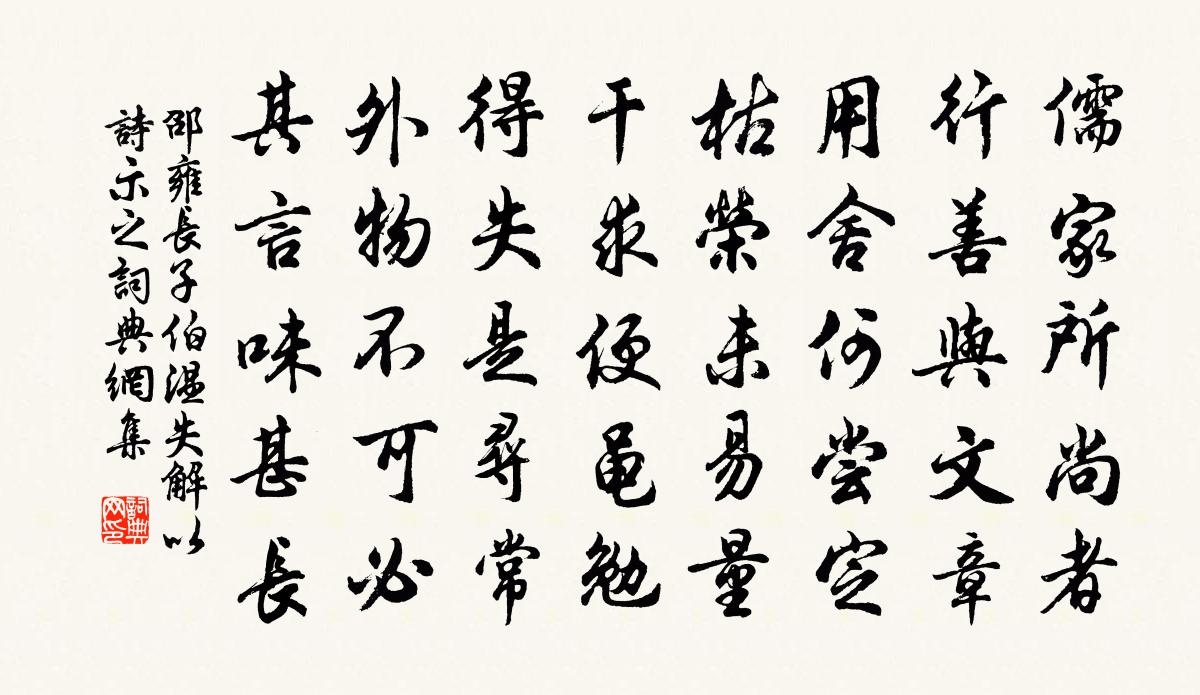 儒家所尚者
行善與文章
用舍何嘗定
枯榮未易量
干求便黽勉
得失是尋常
外物不可必
其言味甚長
邵雍長子伯溫失解以
詩示之詞典網集
詞典
网印